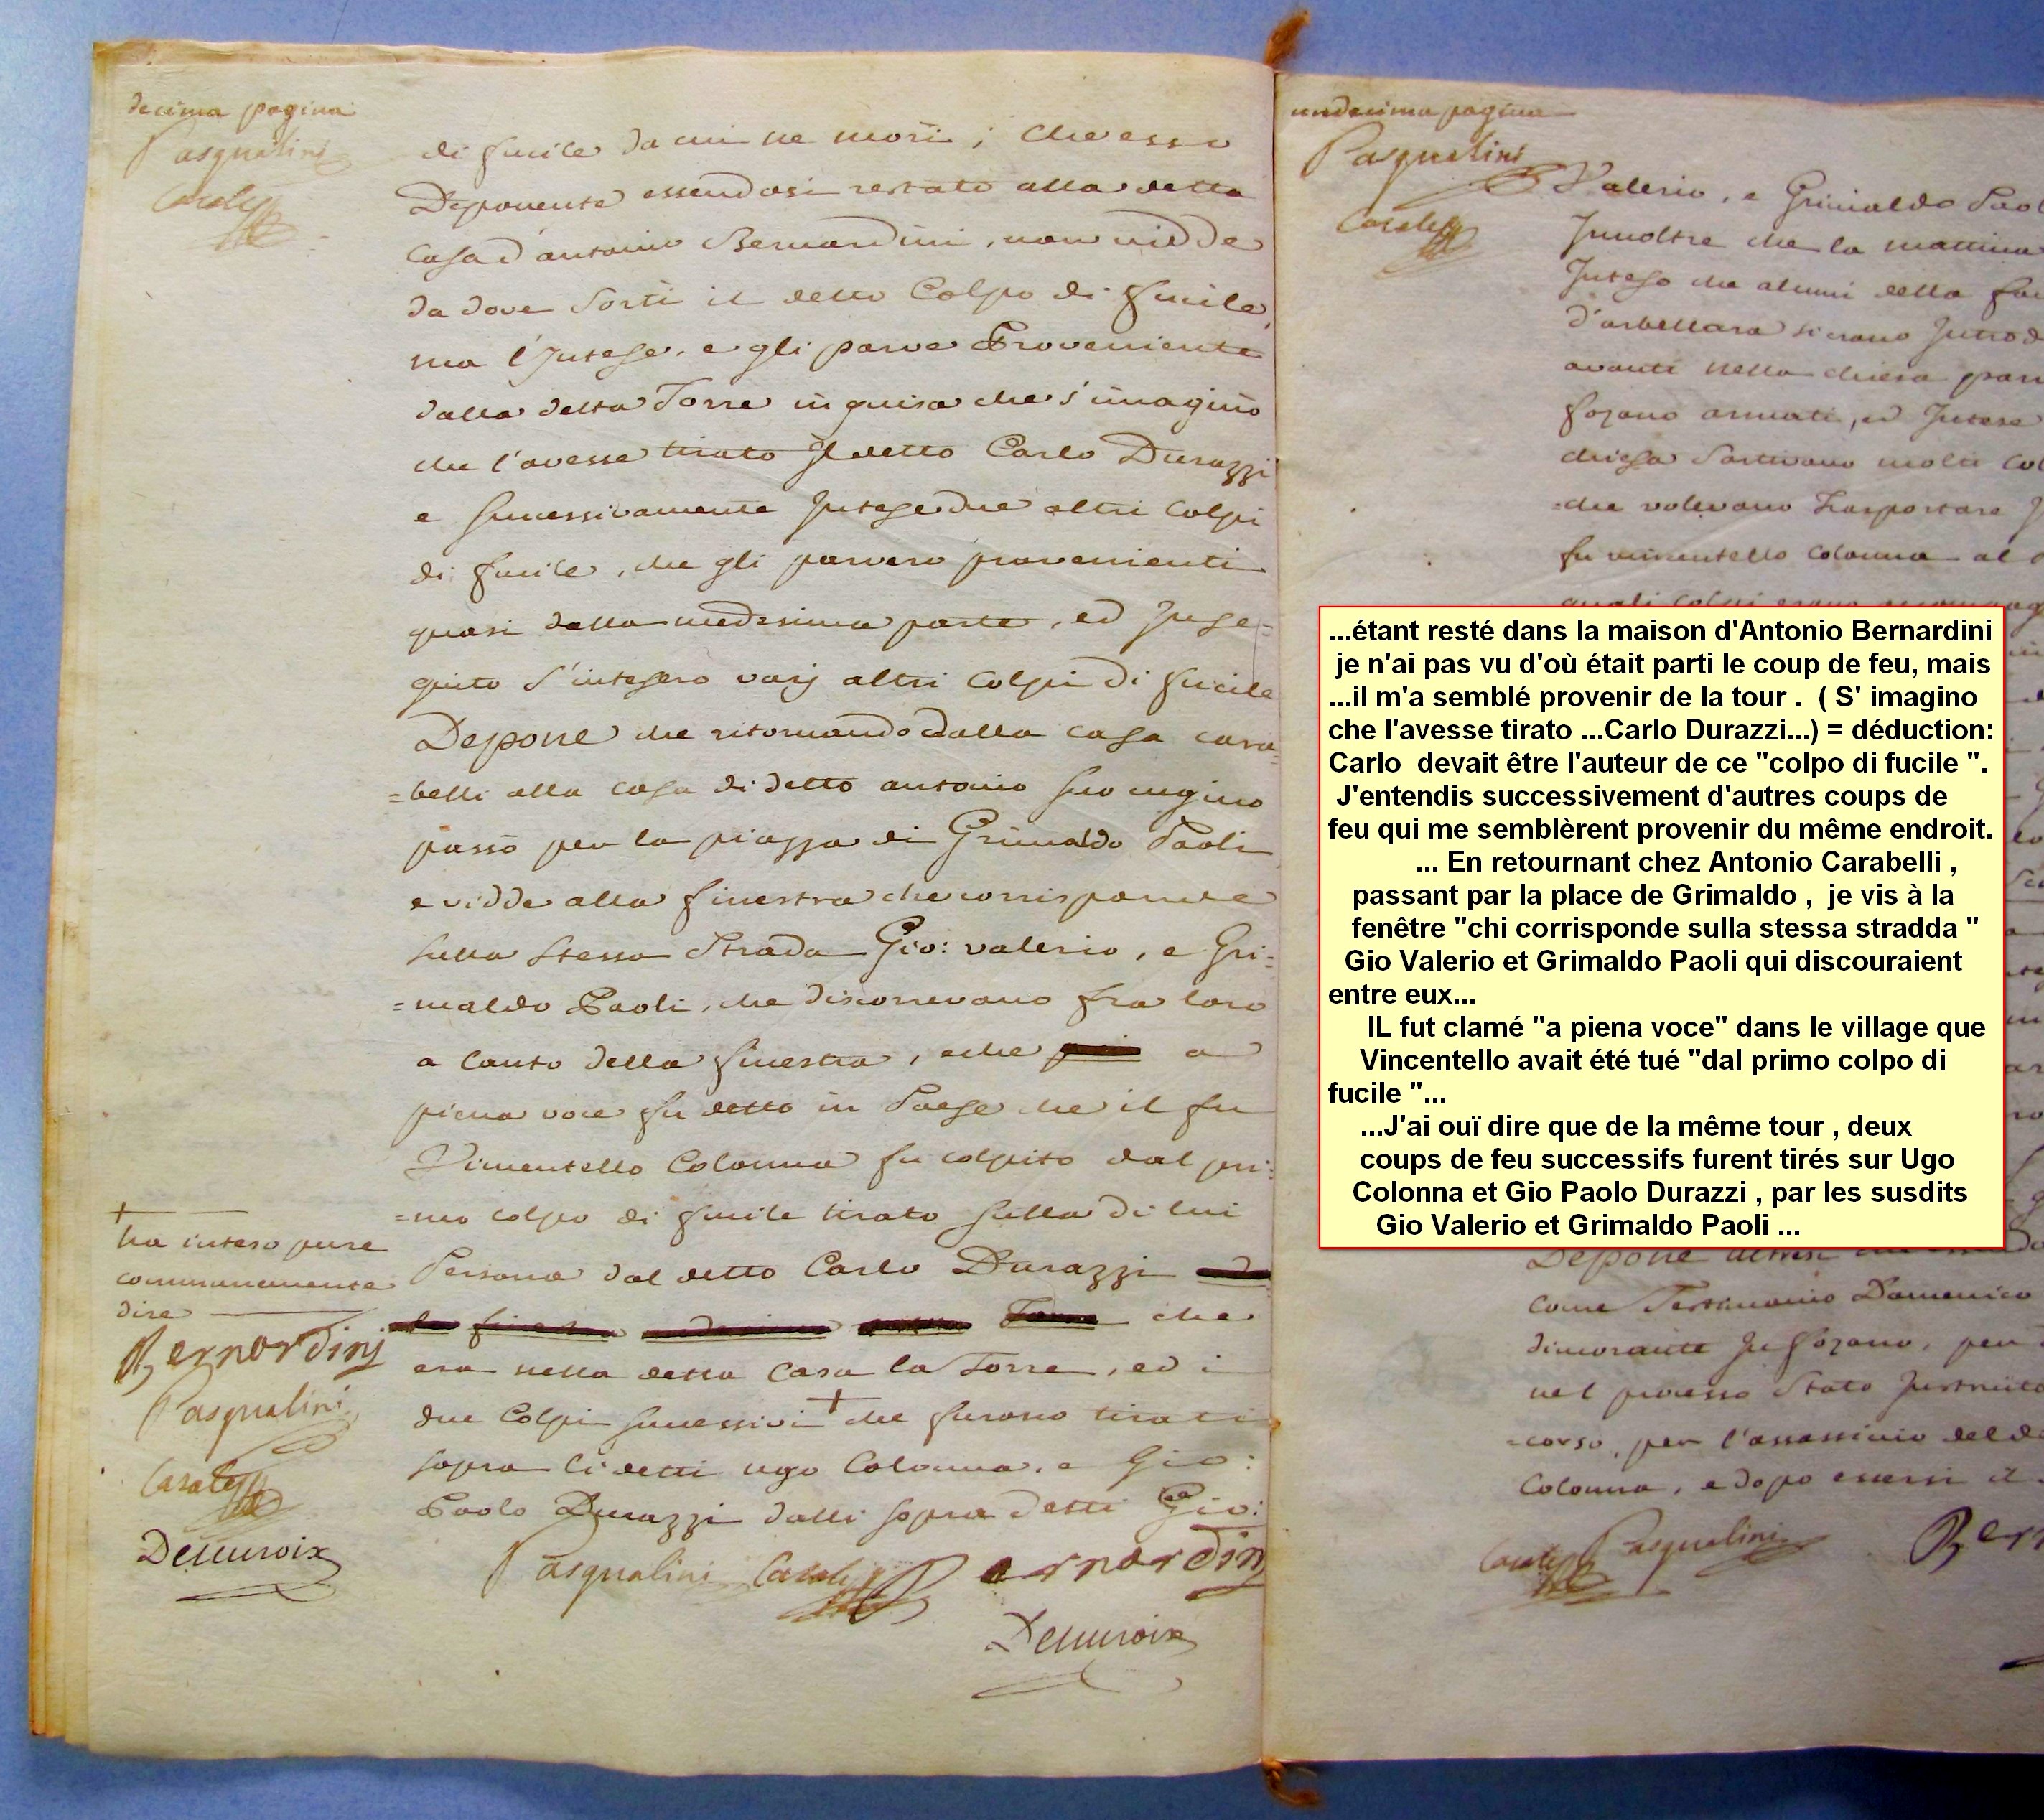 decima pagina
Pasqualini
Casale
di fucile da cui ne morì; che esso
Deponente essendosi restato alla detta
Casa d'antonio Bernardini, non vidde
da dove sortì il detto Colpo di fucile,
ma l'Intese, e gli parve Proveniente
dalla detta Torre in guisa che s'imaginò
che l'avesse tirato Il detto Carlo Durazzi
e successivamente Intese due altri Colpi
di fucile, che gli parvero provenienti
quasi dalla medesima parte, ed Inse=
guito s'intesero varj altri Colpi di fucile
Depone che ritornando dalla casa cara
=belli alla casa di detto antonio suo cugino
passò per la piazza di Grimaldo Paoli
e vidde alla finestra che corrisponde
sulla stessa Strada Gio: valerio, e Gri=
=maldo Paoli, che discorrevano fra loro
a canto della finestra, e che a
piena voce fu detto in Paese che il fu
Vincentello Colonna fu colpito dal pri=
=mo colpo di fucile tirato sulla di lui
Persona dal detto Carlo Durazzi
Torre che
era nella detta Casa la Torre, ed i
due Colpi successivi + che furono tirati
sopra li detti ugo Colonna, e Gio:
Paolo Durazzi dalli sopra detti Gio:
+
ha inteso pure
communemente
dire
Bernardinj
Pasqualini
Casale
Delacroix
Pasqualini Casale Bernardinj
Delacroix
undecima pagina
Pasqualini
Casale
Valerio, e Grimaldo Paol
Innoltre che la mattina
Inteso che alcuni della
d'arbellara si erano Introd
avanti nella chiesa parr
fozano armati, ed Intese
chiesa Sortivano molti col
=che volevano Trasportare
fu vincentello Colonna al
quali colpi erano
...étant resté dans la maison d'Antonio Bernardini
je n'ai pas vu d'où était parti le coup de feu, mais
...il m'a semblé provenir de la tour . ( S' imagino
che l'avesse tirato ...Carlo Durazzi...) = déduction:
Carlo devait être l'auteur de ce "colpo di fucile ".
J'entendis successivement d'autres coups de
feu qui me semblèrent provenir du même endroit.
... En retournant chez Antonio Carabelli ,
passant par la place de Grimaldo , je vis à la
fenêtre "chi corrisponde sulla stessa stradda "
Gio Valerio et Grimaldo Paoli qui discouraient
entre eux...
IL fut clamé "a piena voce" dans le village que
Vincentello avait été tué "dal primo colpo di
fucile "...
...J'ai ouï dire que de la même tour , deux
coups de feu successifs furent tirés sur Ugo
Colonna et Gio Paolo Durazzi , par les susdits
Gio Valerio et Grimaldo Paoli ...
Depone altresì che
come Testimonio Domenico
dimorante In fozano, per
nel processo Stato Instruito
=corso, per l'assassinio del d
Colonna, e dopo essersi il
Casale Pasqualini Ber